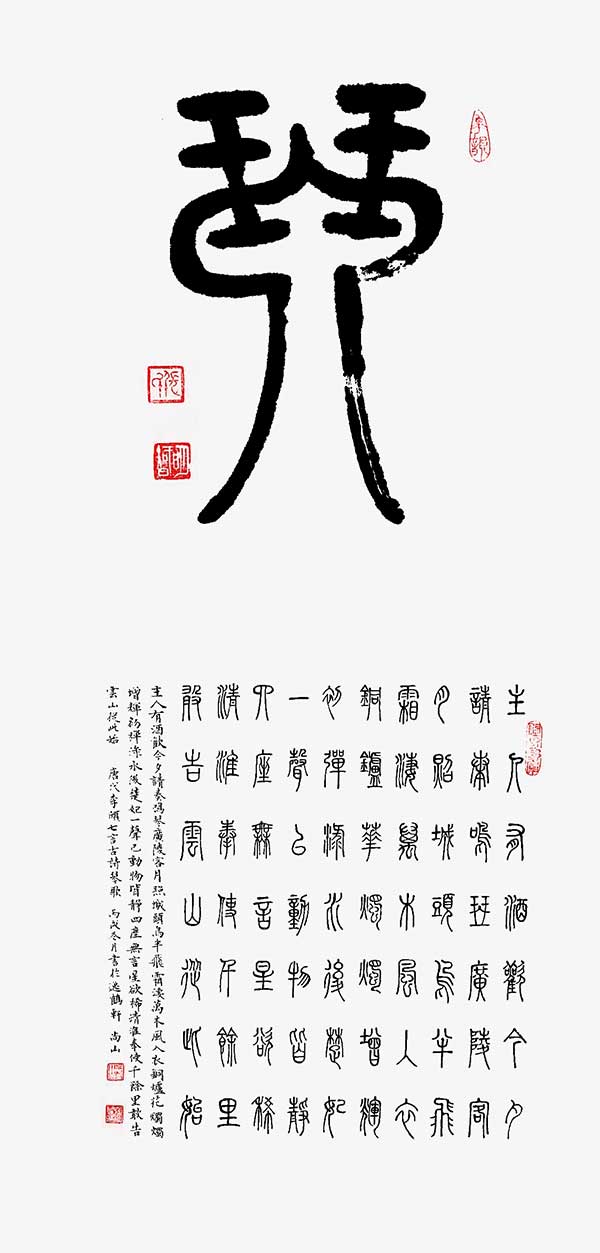 琴
主人有酒歡今夕
請奏鳴琴廣陵客
月照城頭烏半飛
霜淒萬木風入衣
銅鑪華燭燭增輝
初彈淥水後楚妃
一聲已動物皆靜
四座無言星欲稀
清淮奉使千餘里
敢告雲山從此始
主人有酒歡今夕請奏鳴琴廣陵客月照城頭烏半飛霜淒萬木風入衣銅爐花燭燭
增輝初彈淥水後楚妃一聲已動物皆靜四座無言星欲稀清淮奉使千餘里敢告
雲山從此始 唐代李頎七言古詩琴歌 丙戌冬月書於逸鶴軒 尚山